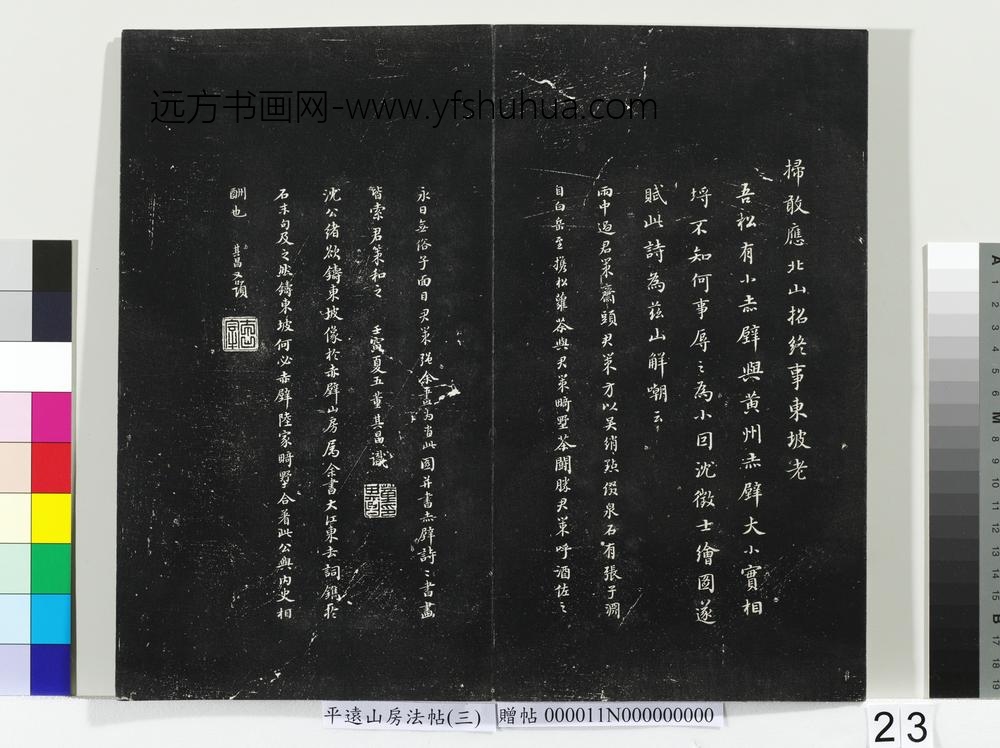 掃敢應北山招終事東坡老
吾松有小赤壁與黃州赤壁大小實相
埒不知何事辱〻為小因沈徵士繪圖遂
賦此詩為茲山解嘲云
雨中過君策齋頭君策方以吳綃點綴泉石有張子淵
自白岳至攜松蘿茶與君策畸墅茶鬪勝君策呼酒佐之
永日無俗子面目君策強余畫為省此圖并書赤壁詩〻書畫
皆索君策和之 壬寅夏五董其昌識
沈公緒欲鑄東坡像於赤壁山房屬余書大江東去詞鐫於
石末句及之然鑄東坡何必赤壁陸家畸墅合着此公與內史相
酬也 其昌又題
远方书画网-www.yfshuhua.com
平遠山房法帖(三) 贈帖 000011N000000000
23